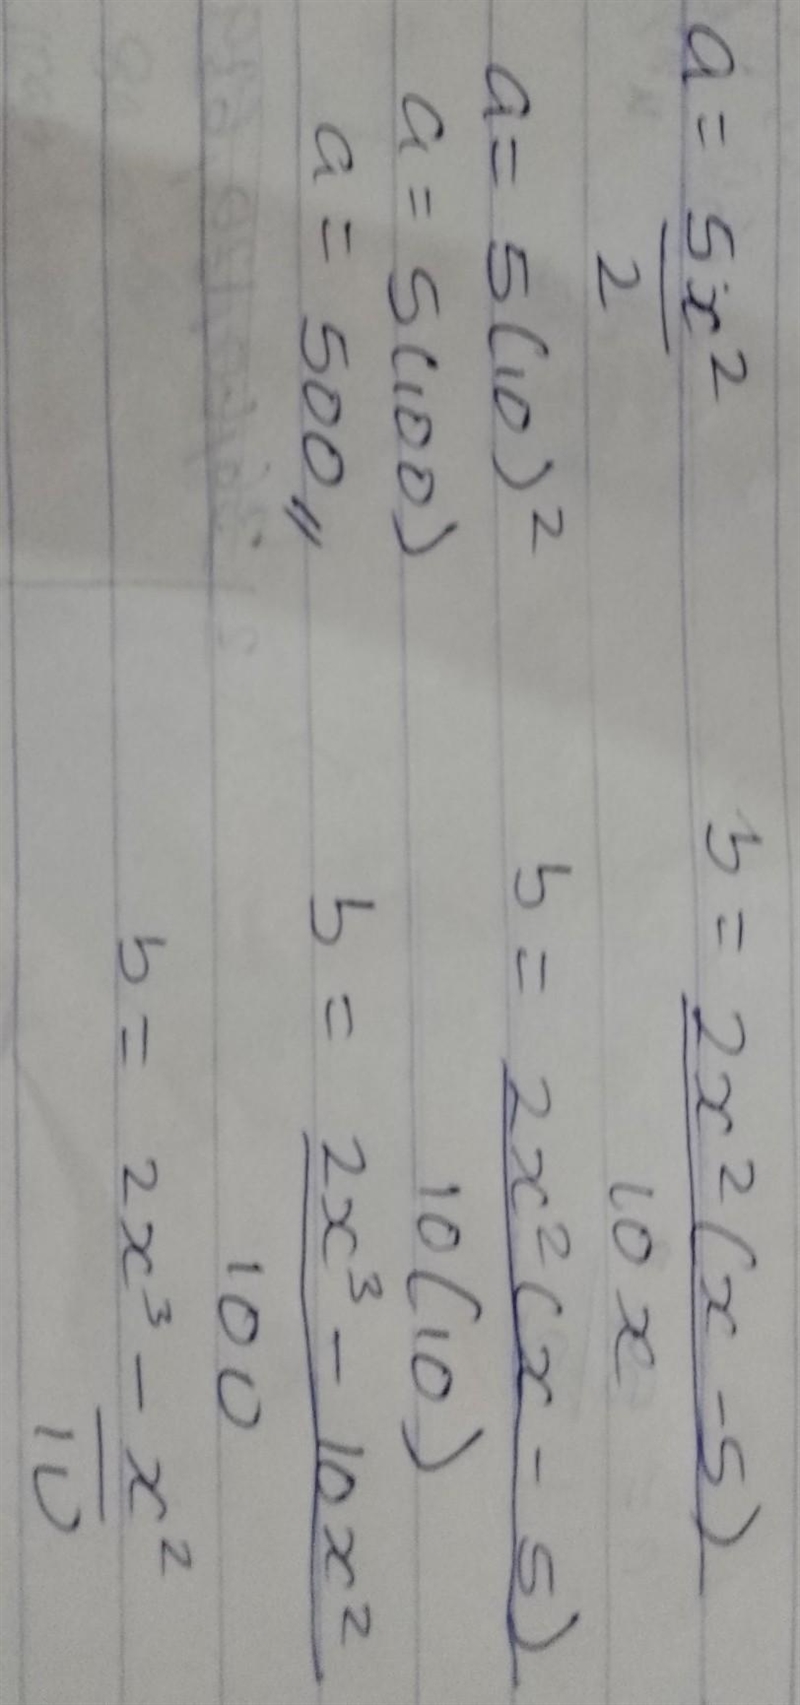 a = 5x²
2
a = 5(10)²
a = 5(100)
a = 500,,
b = 2x²(x - 5)
10x
b = 2x²(x - 5)
10(10)
b = 2x³ - 10x²
100
b = 2x³ - x²
10